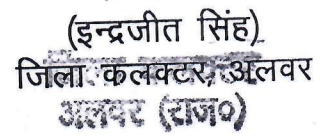 (इन्द्रजीत सिंह)
जिला कलक्टर, अलवर
अलवर (राज०)